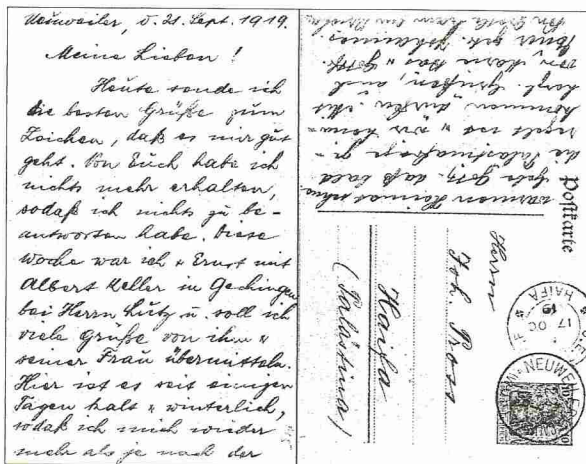 Neuweiler, d. 21. Sept. 1919.
Meine Lieben !
Heute sende ich
die besten Grüße zum
Zeichen, daß es mir gut
geht. Von Euch habe ich
nichts mehr erhalten,
sodaß ich nichts zu be-
antworten habe. Diese
Woche war ich u Ernst mit
Albert Keller in Gechingen
bei Herrn Lutz u. soll ich
viele Grüße von ihm u
seiner Frau übermitteln.
Hier ist es seit einigen
Tagen kalt u winterlich,
sodaß ich mich wieder
mehr als je nach der
warmen Heimat
daß bald
die
u wir
kommen dürfen
herzl. Grüßen, auch
von
Postkarte
Herrn
Joh. Pross
Haifa
(Palästina)
HAIFA
17 OC
19
NEUWEILER